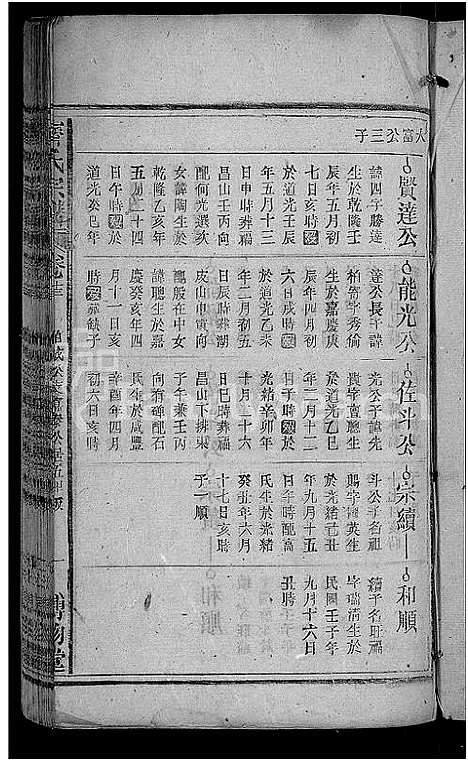 大富公三子
賢達公
諱四字勝達
生於乾隆壬
辰年五月初
七日亥時歿
於道光壬辰
年五月十三
日申時葬福
昌山壬丙向
配何光選次
女諱陶生於
乾隆乙亥年
五月二十四
日午時歿於
道光癸巳年
能光公
達公長子諱
柏寄字秀偷
生於嘉慶庚
辰年四月初
六日戌時歿
於道光乙未
年二月初五
日辰時葬湖
皮山巾寅向
配殷在中女
諱聰生於嘉
慶癸亥年四
月十一日亥
時歿缺子
佐斗公
光公子諱先
貴字賣聰生
於道光乙巳
年二月十二
日子時歿於
光緒辛卯年
十月二十六
日巳時葬福
昌山下排東
子午兼壬丙
向有碑配石
氏生於咸豐
辛酉年四月
初六日亥時
宗續
斗公子名祖
賜字種英生
於光緒己丑
年九月十五
日午時配高
氏生於光緒
癸卯年六月
十七日亥時
子一順
和順
續子名旺福
字瑞清生於
民國壬子年
九月十六日
丑時
氏宗譜
博物堂